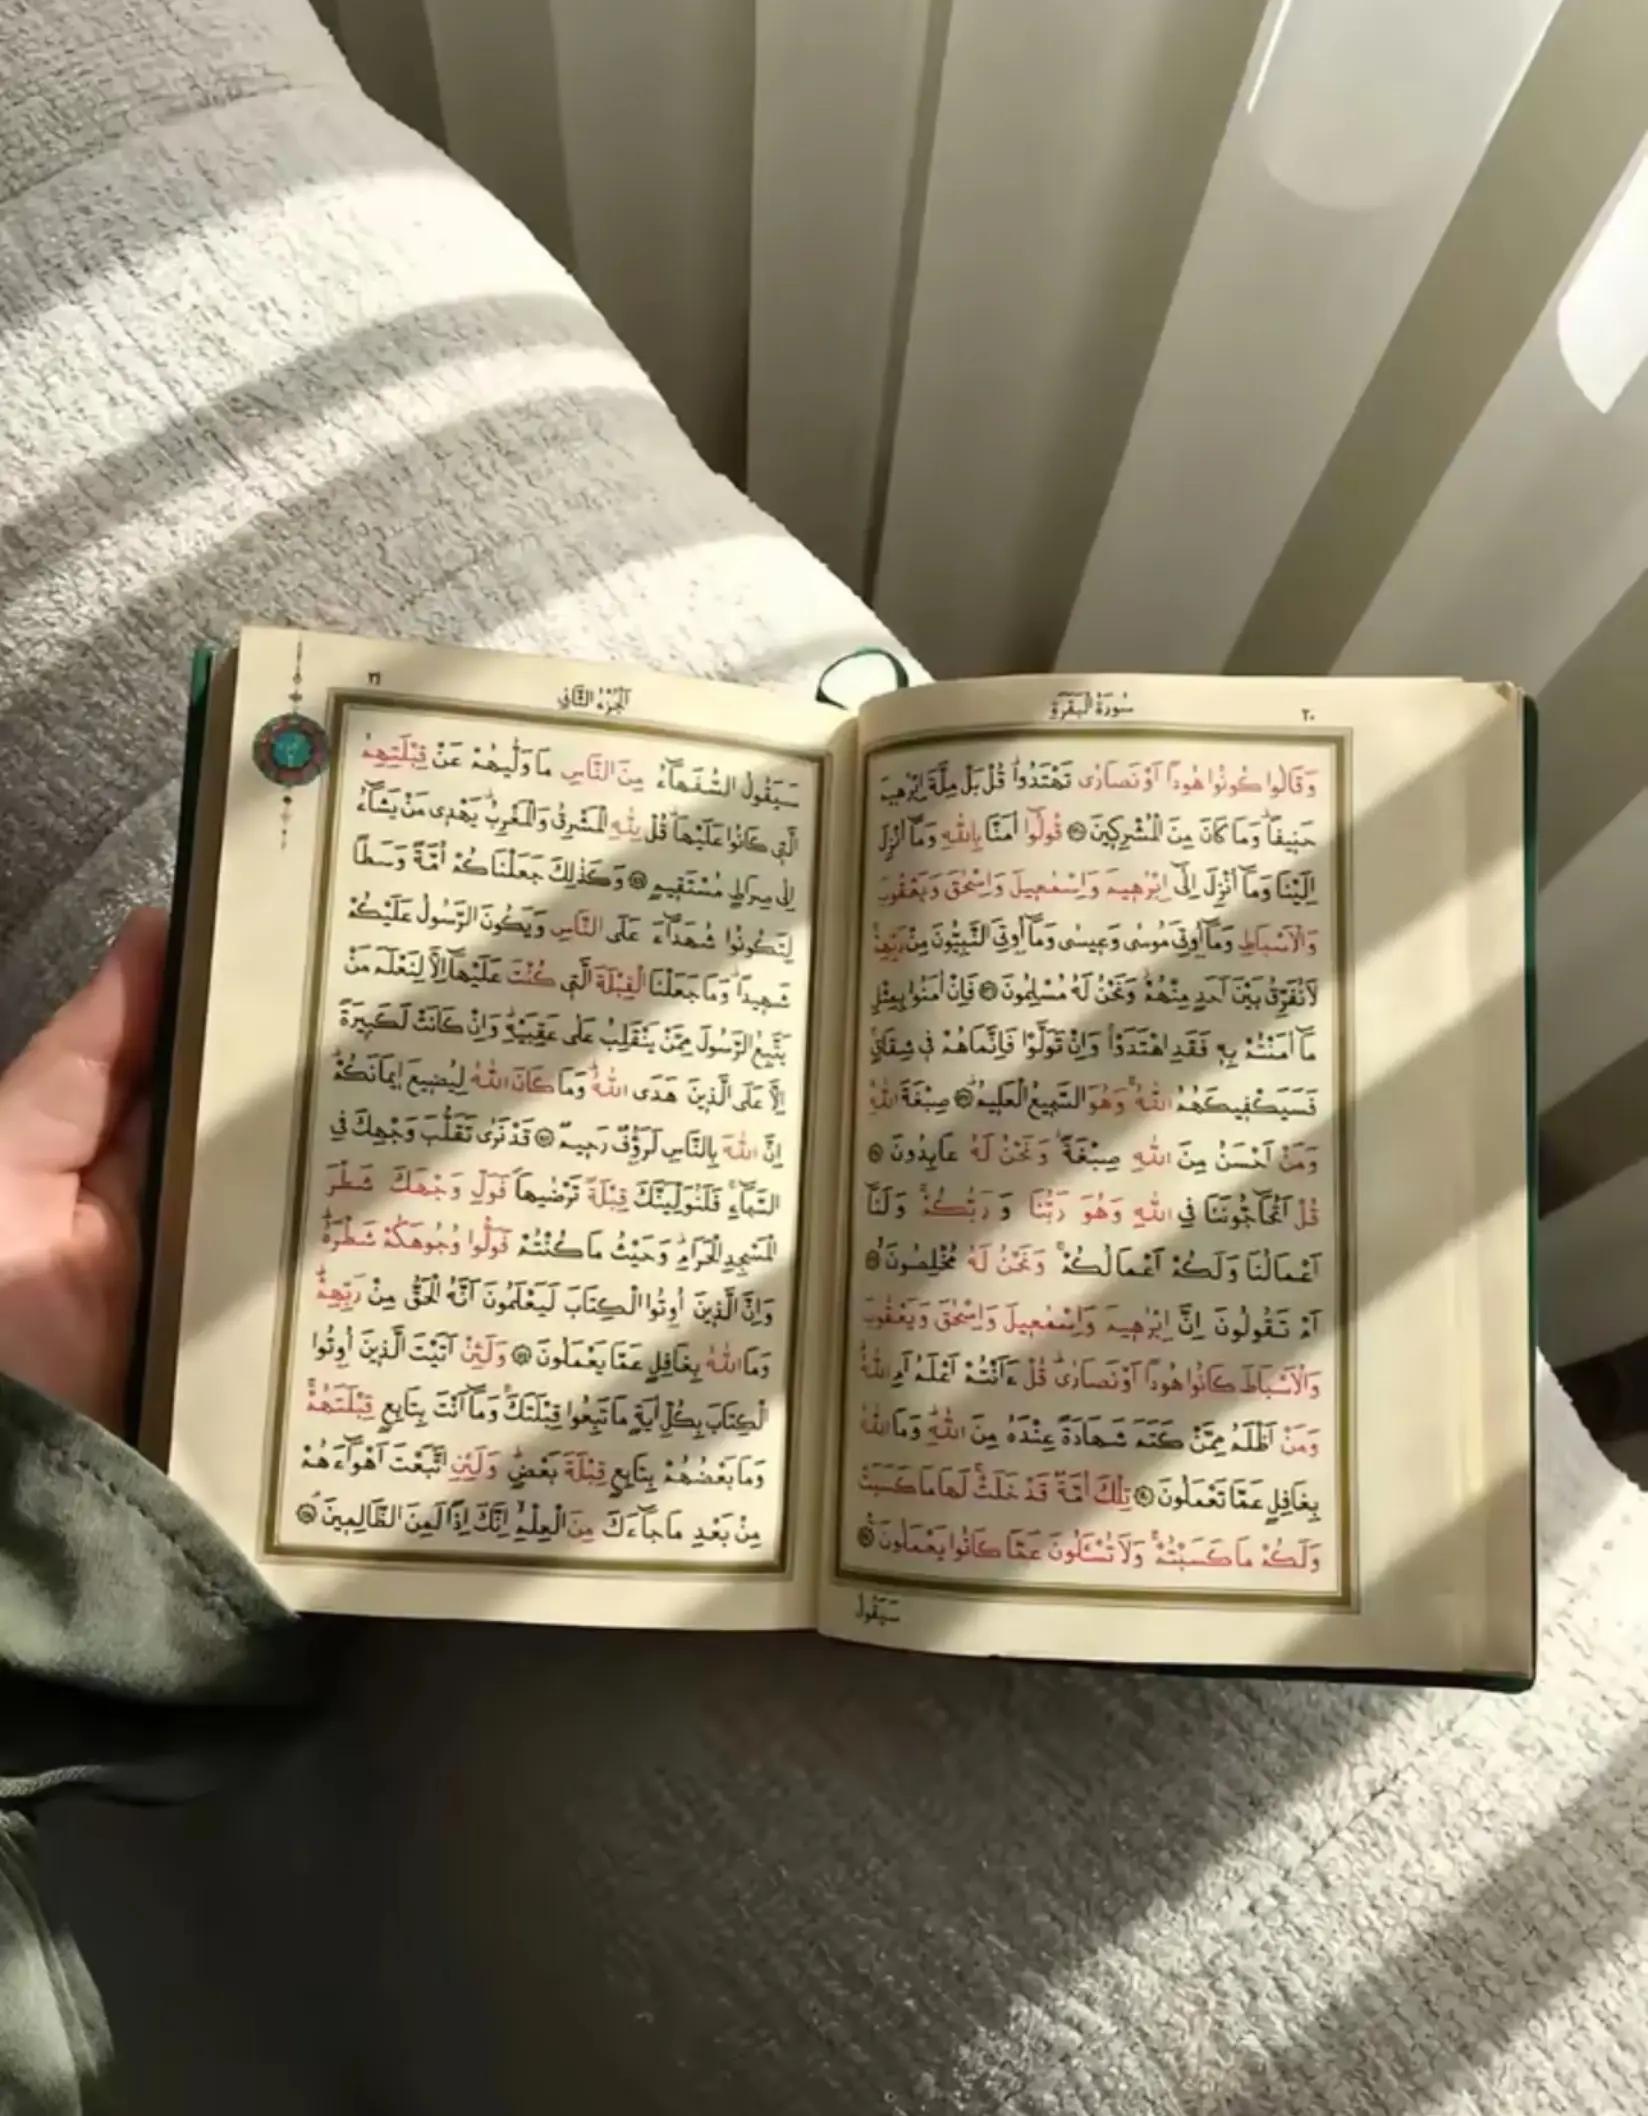 سُورَةُ الْبَقَرَةِ
٢٠
وَقَالُوا كُونُوا هُودًا اَوْ نَصَارٰى تَهْتَدُواۜ قُلْ بَلْ مِلَّةَ اِبْرٰهٖيمَ
حَنٖيفًاۜ وَمَا كَانَ مِنَ الْمُشْرِكٖينَ ﴿١٣٥﴾ قُولُٓوا اٰمَنَّا بِاللّٰهِ وَمَٓا اُنْزِلَ
اِلَيْنَا وَمَٓا اُنْزِلَ اِلٰٓى اِبْرٰهٖيمَ وَاِسْمٰعٖيلَ وَاِسْحٰقَ وَيَعْقُوبَ
وَالْاَسْبَاطِ وَمَٓا اُو۫تِيَ مُوسٰى وَعٖيسٰى وَمَٓا اُو۫تِيَ النَّبِيُّونَ مِنْ رَبِّهِمْۚ
لَا نُفَرِّقُ بَيْنَ اَحَدٍ مِنْهُمْۘ وَنَحْنُ لَهُ مُسْلِمُونَ ﴿١٣٦﴾ فَاِنْ اٰمَنُوا بِمِثْلِ
مَٓا اٰمَنْتُمْ بِهٖ فَقَدِ اهْتَدَوْاۚ وَاِنْ تَوَلَّوْا فَاِنَّمَا هُمْ فٖي شِقَاقٍۚ
فَسَيَكْفٖيكَهُمُ اللّٰهُۚ وَهُوَ السَّمٖيعُ الْعَلٖيمُۜ ﴿١٣٧﴾ صِبْغَةَ اللّٰهِۚ
وَمَنْ اَحْسَنُ مِنَ اللّٰهِ صِبْغَةًۘ وَنَحْنُ لَهُ عَابِدُونَ ﴿١٣٨﴾
قُلْ اَتُحَٓاجُّونَنَا فِي اللّٰهِ وَهُوَ رَبُّنَا وَرَبُّكُمْۚ وَلَنَٓا
اَعْمَالُنَا وَلَكُمْ اَعْمَالُكُمْۚ وَنَحْنُ لَهُ مُخْلِصُونَۙ ﴿١٣٩﴾
اَمْ تَقُولُونَ اِنَّ اِبْرٰهٖيمَ وَاِسْمٰعٖيلَ وَاِسْحٰقَ وَيَعْقُوبَ
وَالْاَسْبَاطَ كَانُوا هُودًا اَوْ نَصَارٰىۜ قُلْ ءَاَنْتُمْ اَعْلَمُ اَمِ اللّٰهُۜ
وَمَنْ اَظْلَمُ مِمَّنْ كَتَمَ شَهَادَةً عِنْدَهُ مِنَ اللّٰهِۜ وَمَا اللّٰهُ
بِغَافِلٍ عَمَّا تَعْمَلُونَ ﴿١٤٠﴾ تِلْكَ اُمَّةٌ قَدْ خَلَتْۚ لَهَا مَا كَسَبَتْ
وَلَكُمْ مَا كَسَبْتُمْۚ وَلَا تُسْـَٔلُونَ عَمَّا كَانُوا يَعْمَلُونَ۟ ﴿١٤١﴾
سَيَقُولُ
اَلْجُزْءُ الثَّانٖي
٢١
سَيَقُولُ السُّفَهَٓاءُ مِنَ النَّاسِ مَا وَلّٰيهُمْ عَنْ قِبْلَتِهِمُ
الَّتٖي كَانُوا عَلَيْهَاۜ قُلْ لِلّٰهِ الْمَشْرِقُ وَالْمَغْرِبُۜ يَهْدٖي مَنْ يَشَٓاءُ
اِلٰى صِرَاطٍ مُسْتَقٖيمٍ ﴿١٤٢﴾ وَكَذٰلِكَ جَعَلْنَاكُمْ اُمَّةً وَسَطًا
لِتَكُونُوا شُهَدَٓاءَ عَلَى النَّاسِ وَيَكُونَ الرَّسُولُ عَلَيْكُمْ
شَهٖيدًاۜ وَمَا جَعَلْنَا الْقِبْلَةَ الَّتٖي كُنْتَ عَلَيْهَٓا اِلَّا لِنَعْلَمَ مَنْ
يَتَّبِعُ الرَّسُولَ مِمَّنْ يَنْقَلِبُ عَلٰى عَقِبَيْهِۜ وَاِنْ كَانَتْ لَكَبٖيرَةً
اِلَّا عَلَى الَّذٖينَ هَدَى اللّٰهُۜ وَمَا كَانَ اللّٰهُ لِيُضٖيعَ اٖيمَانَكُمْۜ
اِنَّ اللّٰهَ بِالنَّاسِ لَرَؤُ۫فٌ رَحٖيمٌ ﴿١٤٣﴾ قَدْ نَرٰى تَقَلُّبَ وَجْهِكَ فِي
السَّمَٓاءِۚ فَلَنُوَلِّيَنَّكَ قِبْلَةً تَرْضٰيهَاۖ فَوَلِّ وَجْهَكَ شَطْرَ
الْمَسْجِدِ الْحَرَامِۜ وَحَيْثُ مَا كُنْتُمْ فَوَلُّوا وُجُوهَكُمْ شَطْرَهُۜ
وَاِنَّ الَّذٖينَ اُو۫تُوا الْكِتَابَ لَيَعْلَمُونَ اَنَّهُ الْحَقُّ مِنْ رَبِّهِمْۜ
وَمَا اللّٰهُ بِغَافِلٍ عَمَّا يَعْمَلُونَ ﴿١٤٤﴾ وَلَئِنْ اَتَيْتَ الَّذٖينَ اُو۫تُوا
الْكِتَابَ بِكُلِّ اٰيَةٍ مَا تَبِعُوا قِبْلَتَكَۚ وَمَٓا اَنْتَ بِتَابِعٍ قِبْلَتَهُمْۚ
وَمَا بَعْضُهُمْ بِتَابِعٍ قِبْلَةَ بَعْضٍۜ وَلَئِنِ اتَّبَعْتَ اَهْوَٓاءَهُمْ
مِنْ بَعْدِ مَا جَٓاءَكَ مِنَ الْعِلْمِۙ اِنَّكَ اِذًا لَمِنَ الظَّالِمٖينَۢ ﴿١٤٥﴾